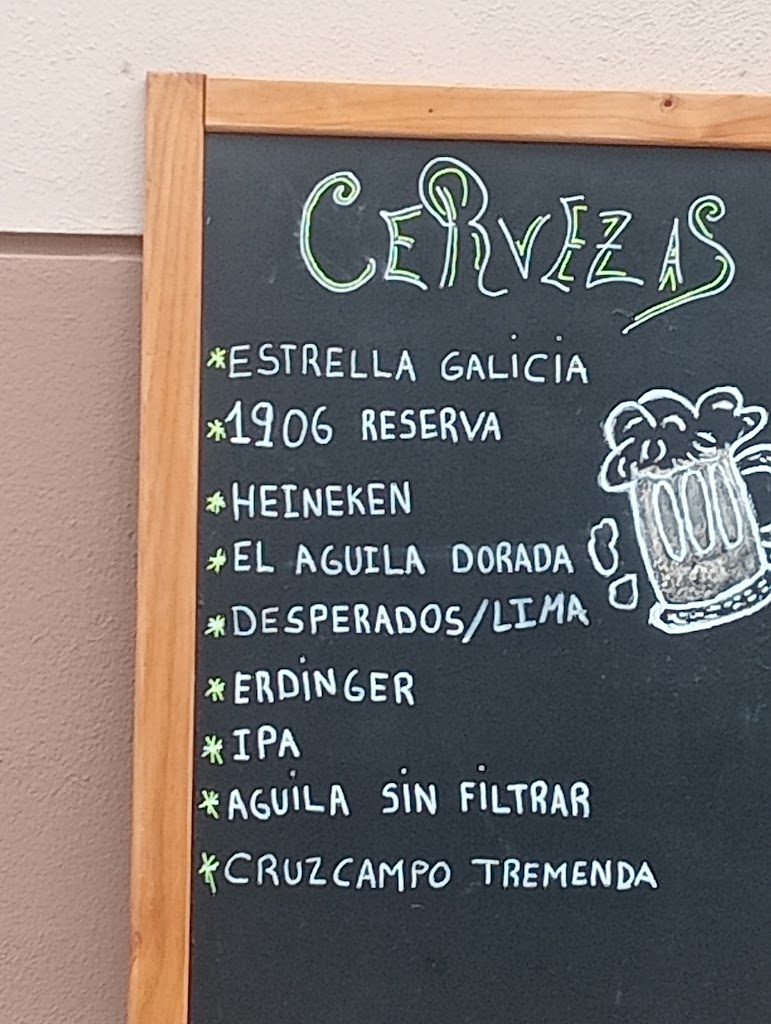 CERVEZAS
*ESTRELLA GALICIA
*1906 RESERVA
*HEINEKEN
*EL AGUILA DORADA
*DESPERADOS/LIMA
*ERDINGER
*IPA
*AGUILA SIN FILTRAR
*CRUZCAMPO TREMENDA